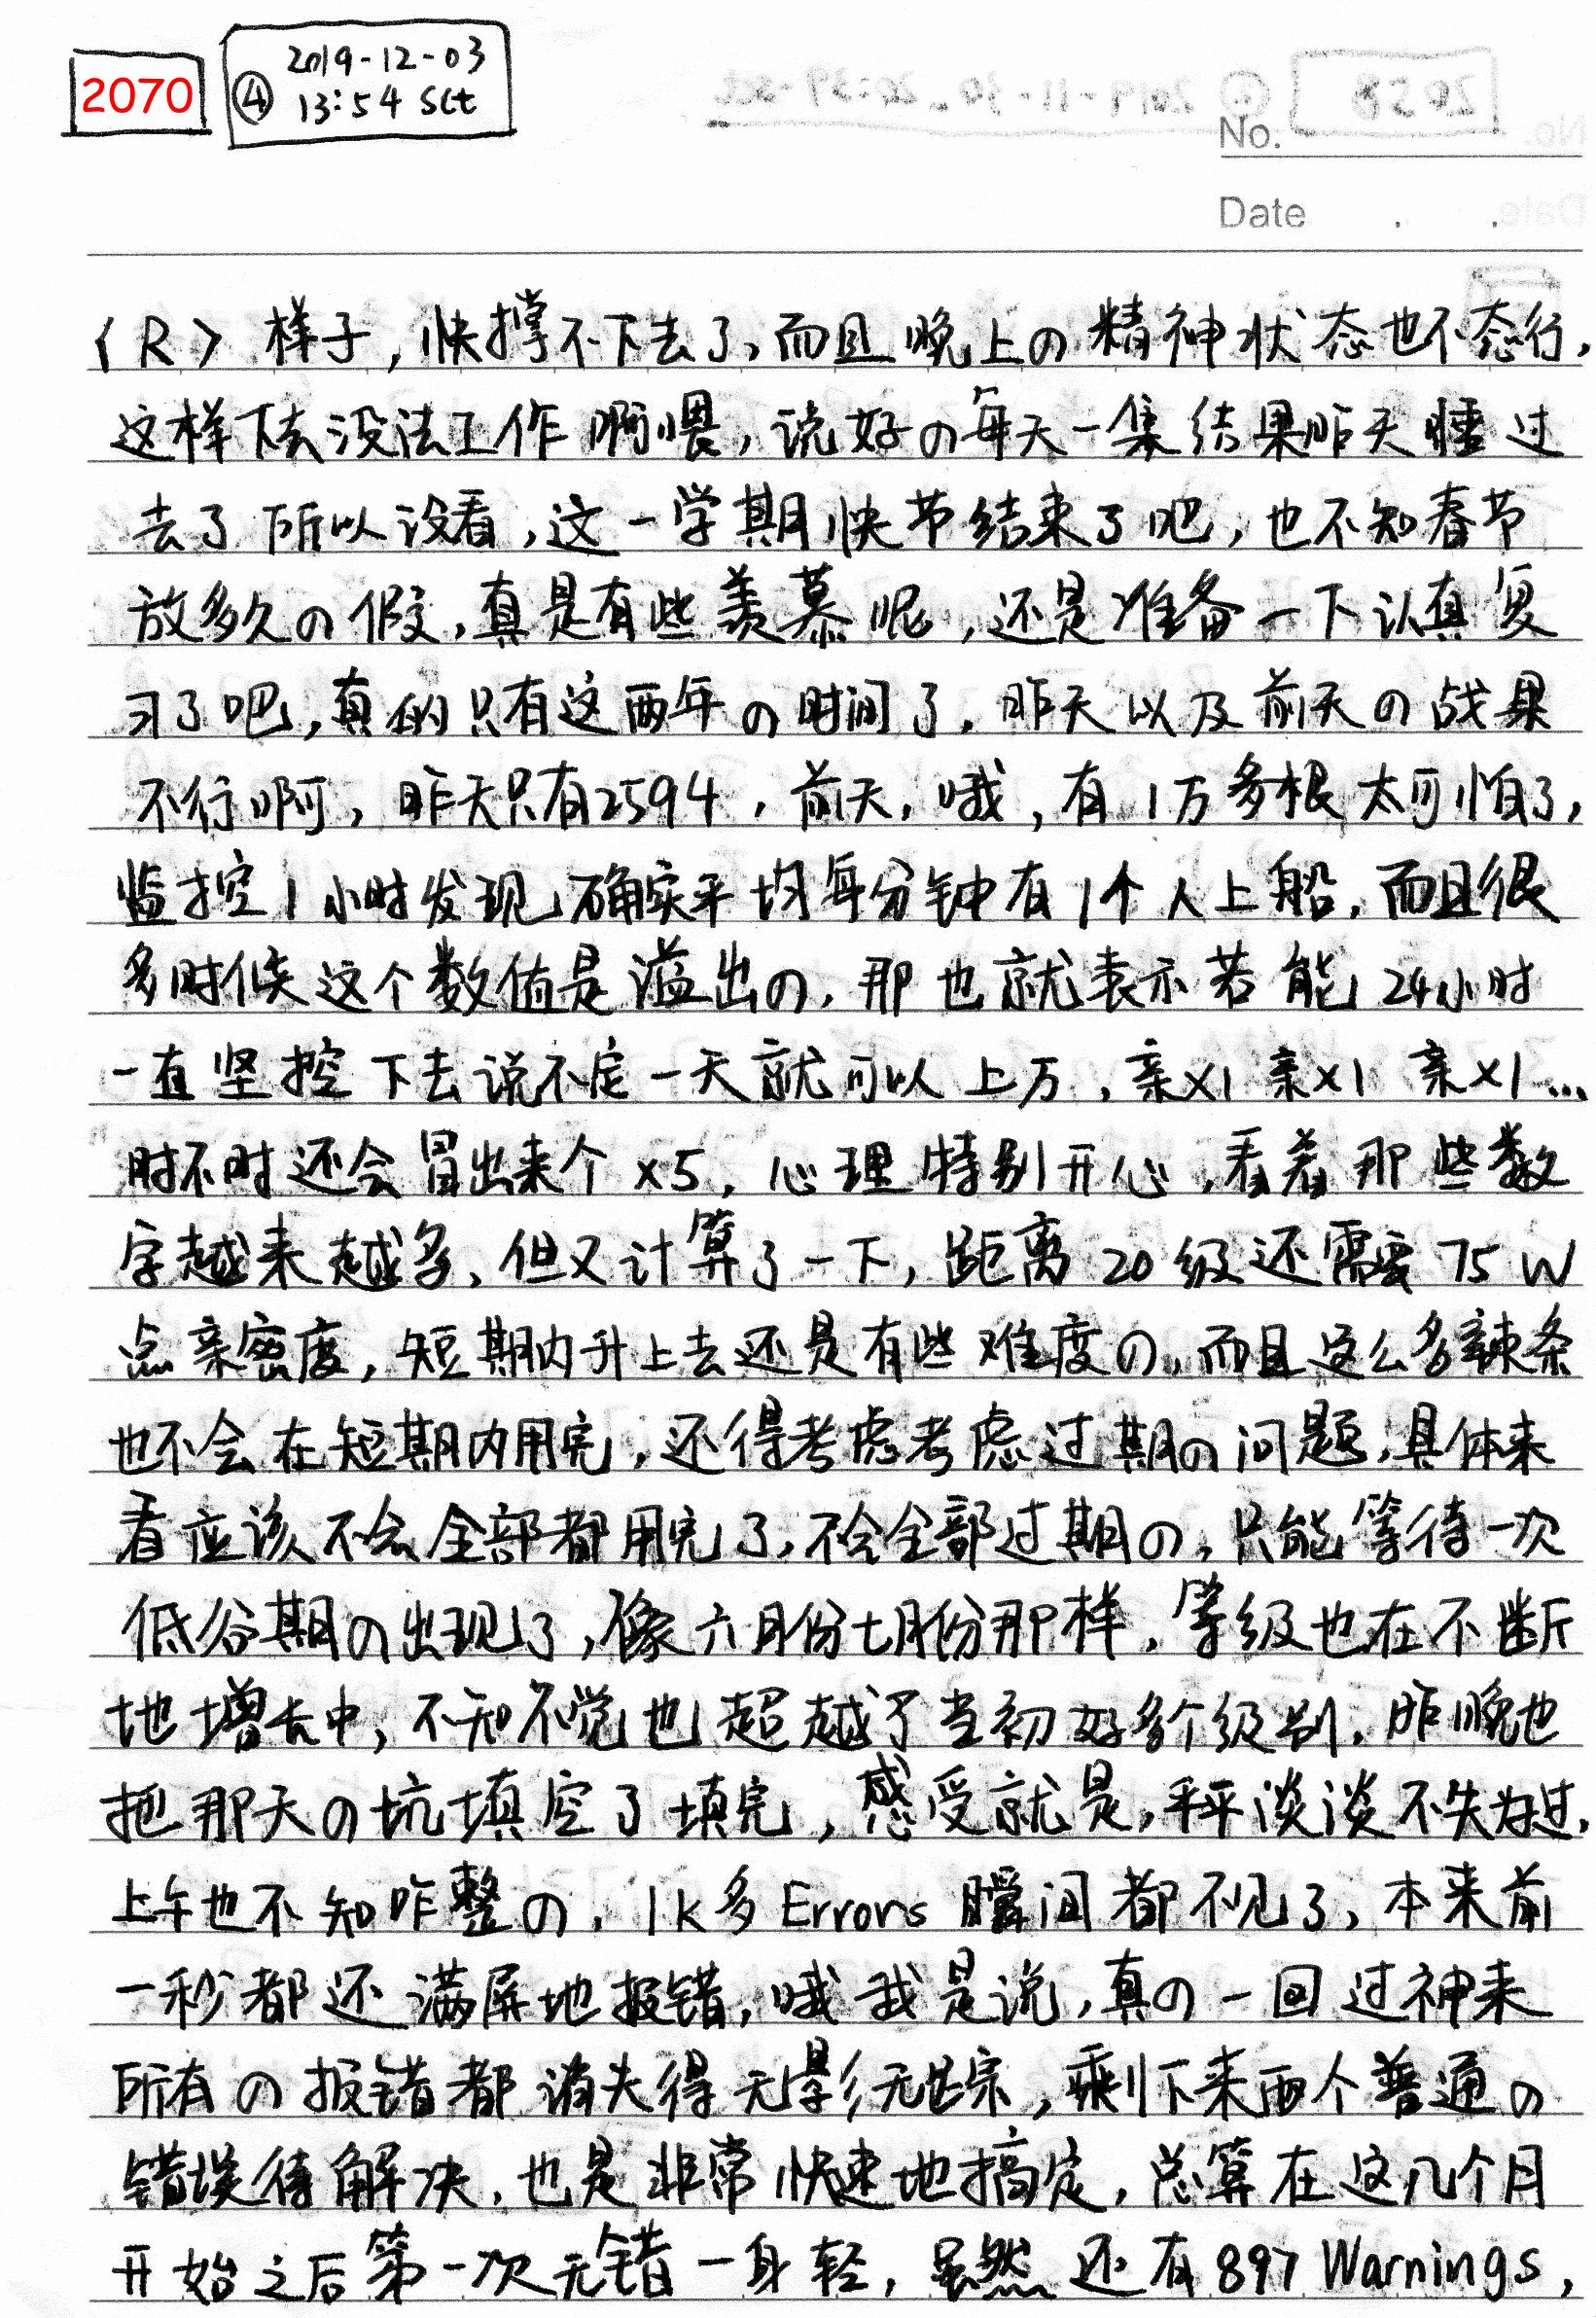 2070 ④ 2019-12-03
13:54 Sct
No.
Date . .
〈R〉 样子,快撑不下去了,而且晚上の精神状态也不态行,
这样下去没法工作啊喂,说好の每天一集结果昨天睡过
去了所以没看,这一学期快节结束了吧,也不知春节
放多久の假,真是有些羡慕呢,还是准备一下认真复
习了吧,真的只有这两年の时间了,昨天以及前天の战果
不行啊,昨天只有2594,前天,哦,有1万多根太可怕了,
监控1小时发现确实平均每分钟有1个人上船,而且很
多时候这个数值是溢出の,那也就表示若能24小时
一直坚控下去说不定一天就可以上万,亲x1亲x1亲x1...
时不时还会冒出来个x5,心理特别开心,看着那些数
字越来越多,但又计算了一下,距离20级还需要75W
点亲密度,短期内升上去还是有些难度の,而且这么多辣条
也不会在短期内用完,还得考虑考虑过期の问题,具体来
看应该不会全部都用完了,不会全部过期の,只能等待一次
低谷期の出现了,像六月份七月份那样,等级也在不断
地增长中,不知不觉也超越了当初好多个级别,昨晚也
把那天の坑填空了填完,感受就是,平平淡淡不失为过,
上午也不知咋整の,1k多Errors瞬间都不见了,本来前
一秒都还满屏地报错,哦我是说,真の一回过神来
所有の报错都消失得无影无踪,剩下来两个普通の
错误待解决,也是非常快速地搞定,总算在这几个月
开始之后第一次无错一身轻,虽然还有897 Warnings,